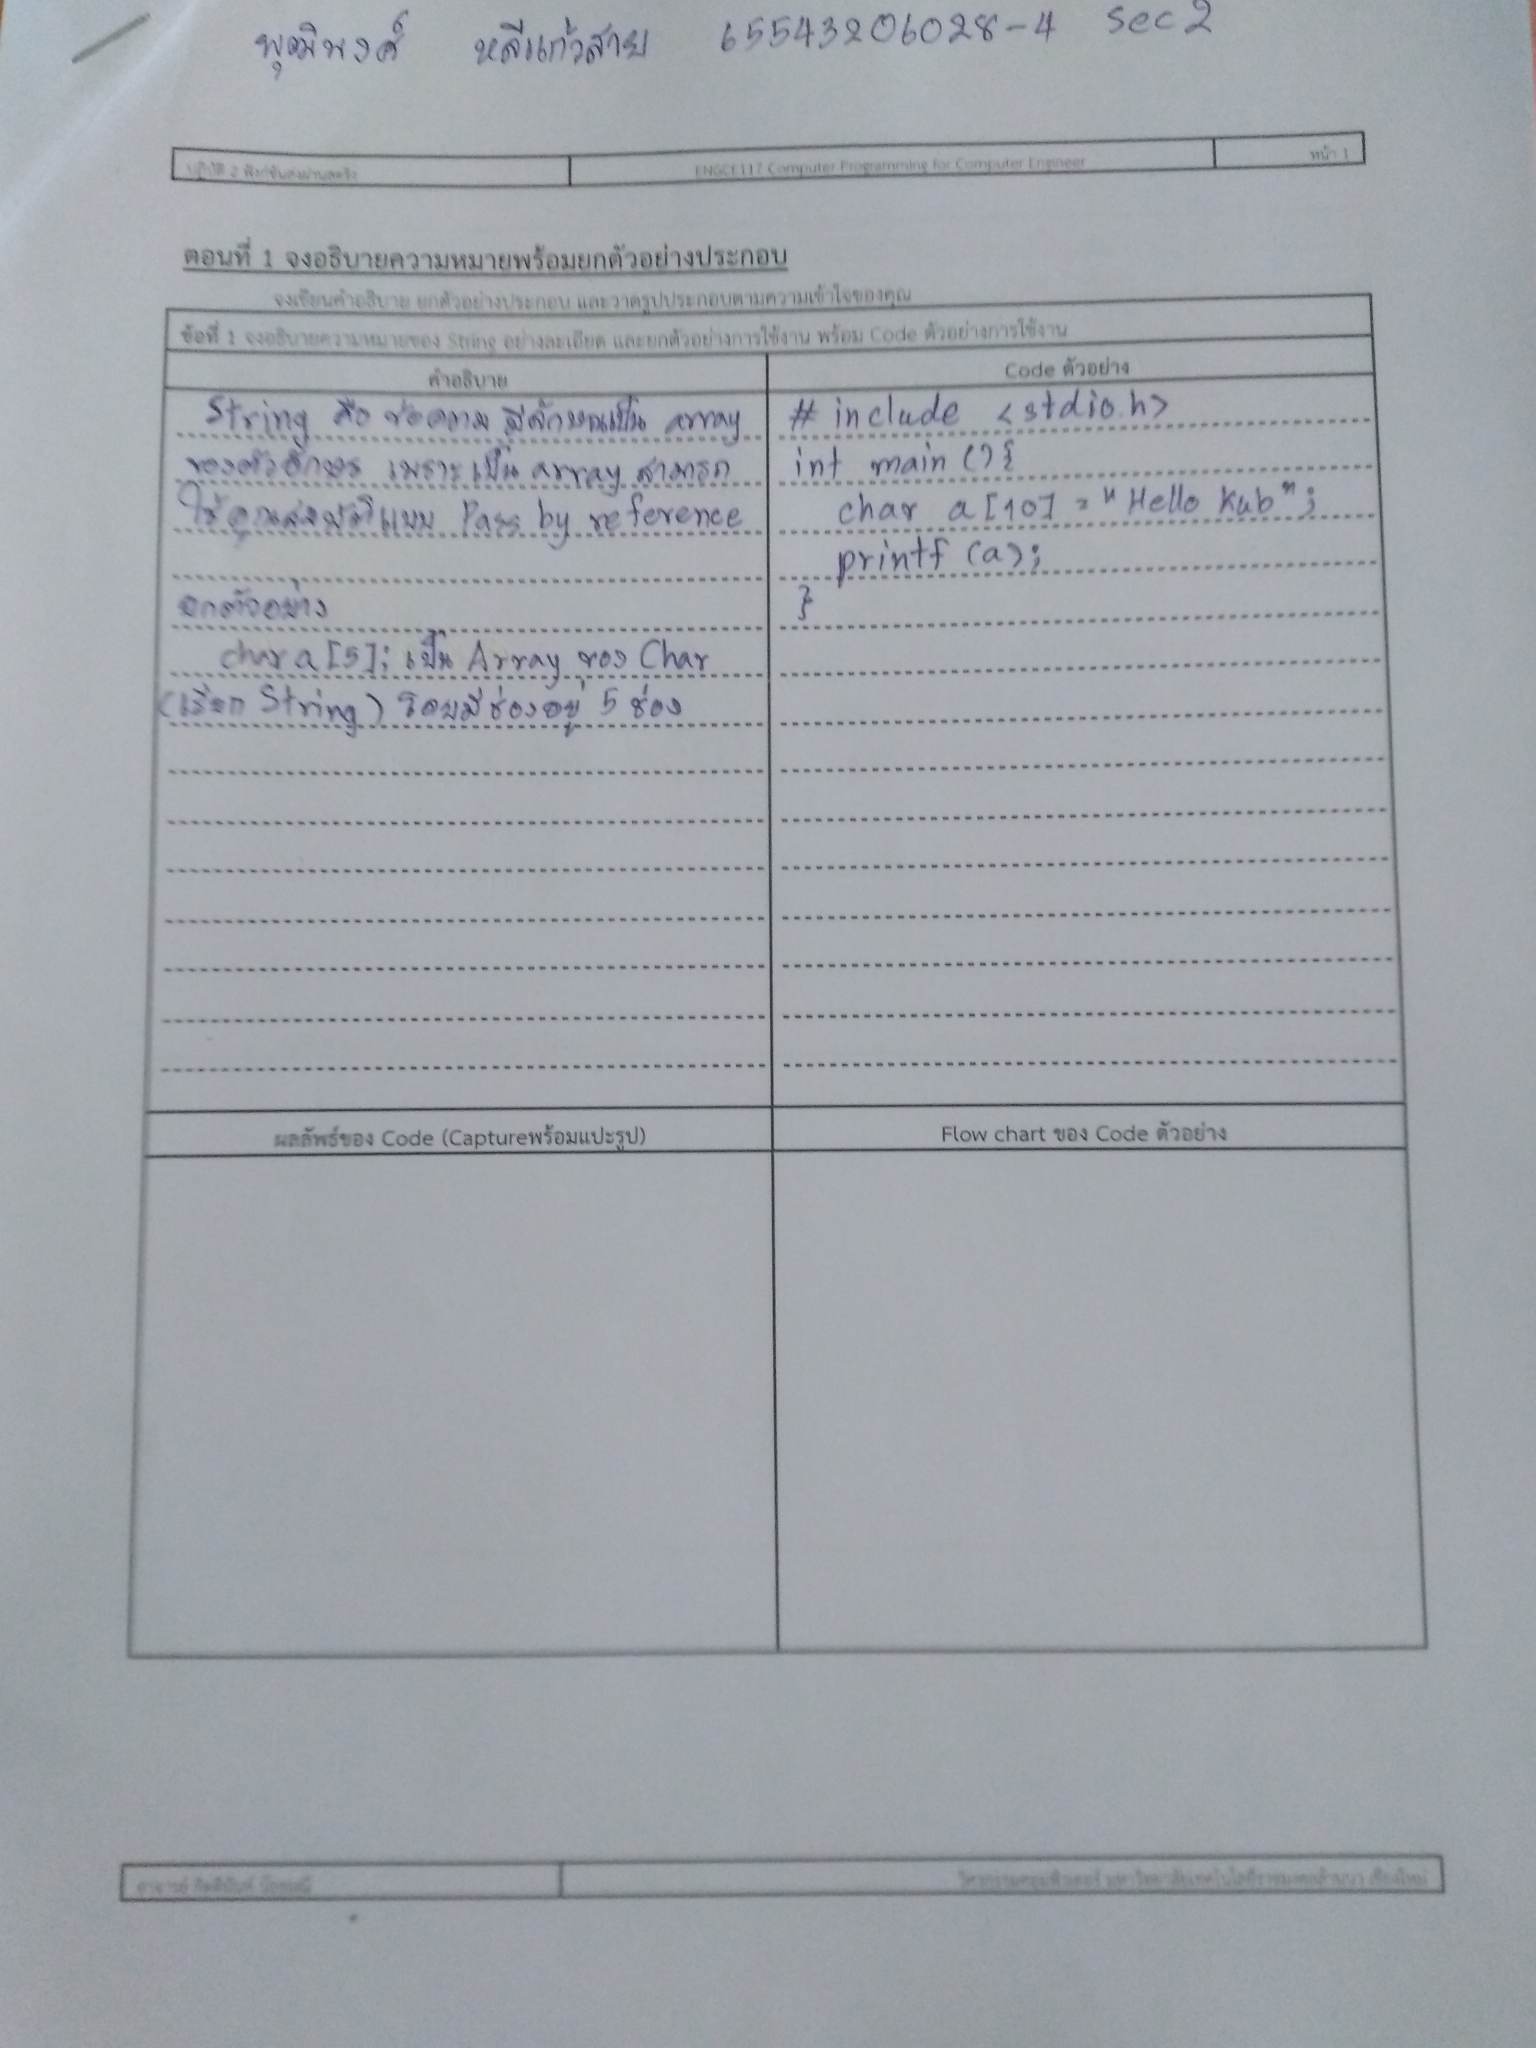 พุฒิพงศ์ หลีแก้วสาย 65543206028-4 sec 2
ปฏิบัติ 2 ฟังก์ชันส่งผ่านสตริง ENGCE117 Computer Programming for Computer Engineer หน้า 1
ตอนที่ 1 จงอธิบายความหมายพร้อมยกตัวอย่างประกอบ
จงเขียนคำอธิบาย ยกตัวอย่างประกอบ และวาดรูปประกอบตามความเข้าใจของคุณ
ข้อที่ 1 จงอธิบายความหมายของ String อย่างละเอียด และยกตัวอย่างการใช้งาน พร้อม Code ตัวอย่างการใช้งาน
คำอธิบาย
String คือ ข้อความ มีลักษณะเป็น array
ของตัวอักษร เพราะเป็น array สามารถ
ใช้คุณสมบัติแบบ Pass by reference
ยกตัวอย่าง
char a[5]; เป็น Array ของ Char
(เรียก String) โดยมีช่องอยู่ 5 ช่อง
Code ตัวอย่าง
# include <stdio.h>
int main () {
char a [10] = "Hello Kub";
printf (a);
}
ผลลัพธ์ของ Code (Captureพร้อมแปะรูป)
Flow chart ของ Code ตัวอย่าง
อาจารย์
วิศวกรรมคอมพิวเตอร์ มหาวิทยาลัยเทคโนโลยีราชมงคลล้านนา เชียงใหม่